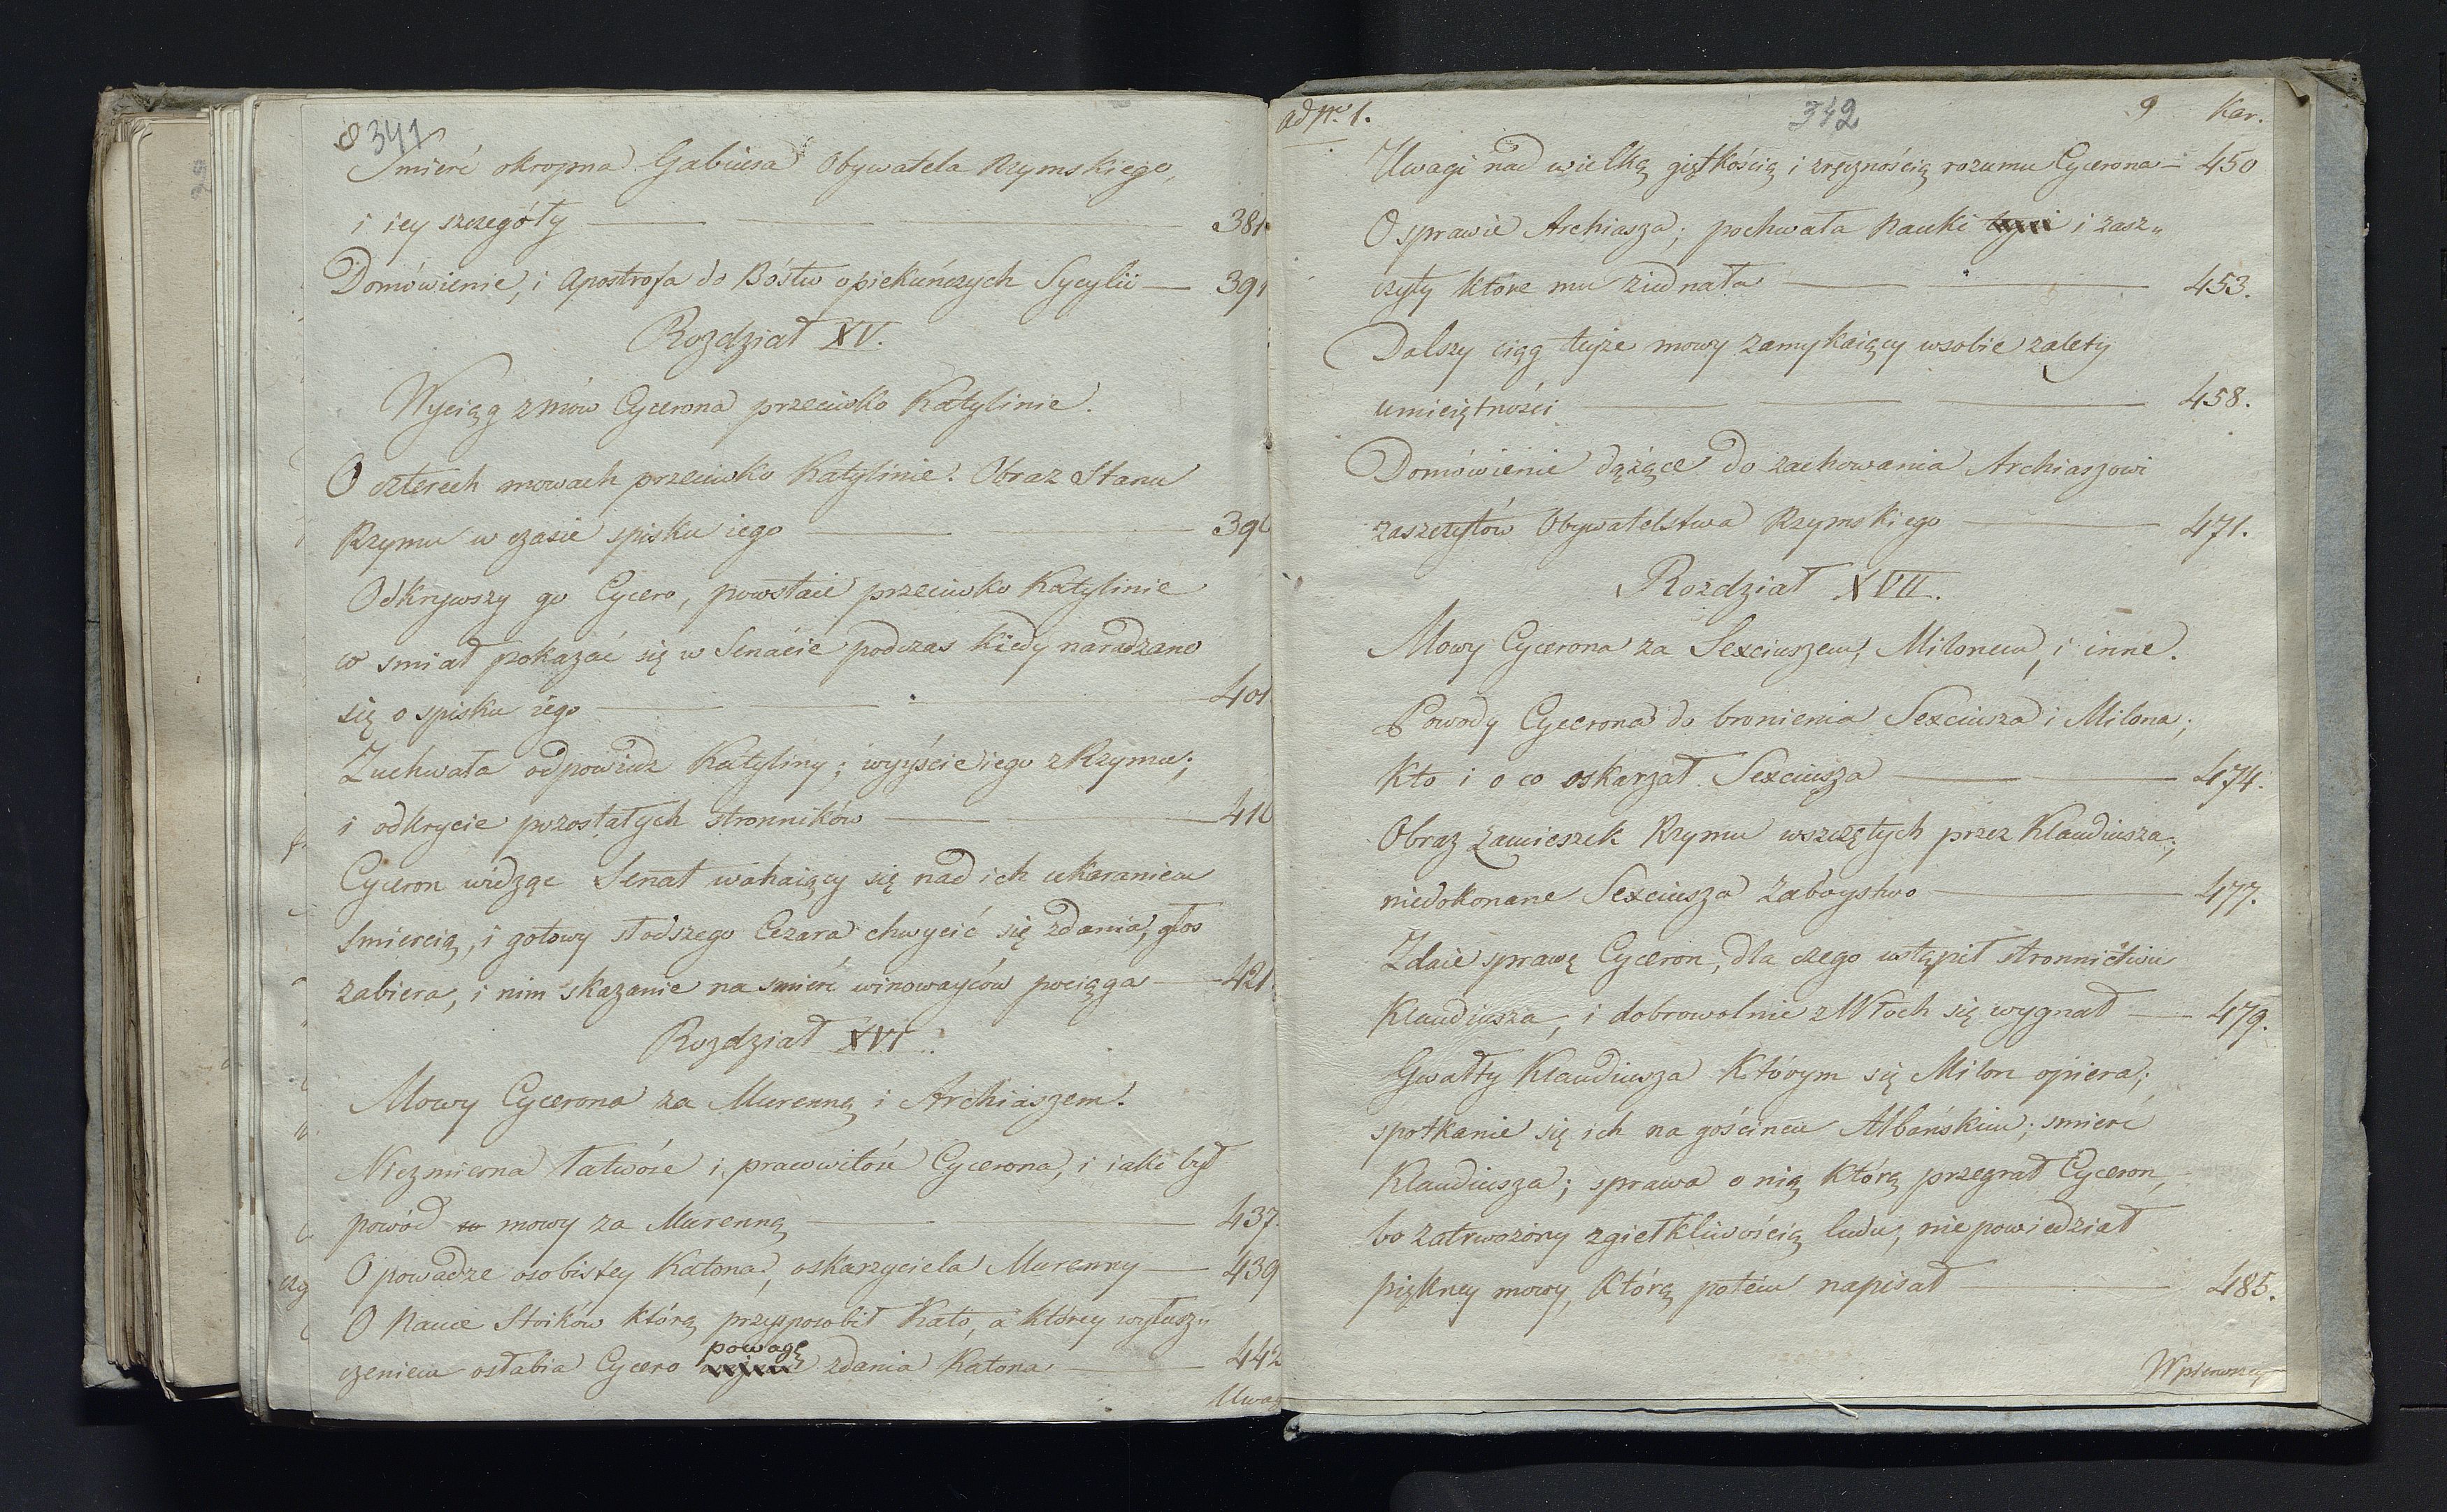 8 341
Smierć okropna Gabiusa Obywatela Rzymskiego,
i iey szczegóły — 381.
Domówienie, i apostrofa do Bóstw opiekuńczych Sycylii — 391
Rozdział XV.
Wyciąg z mów Cycerona przeciwko Katylinie.
O czterech mowach przeciwko Katylinie. Obraz Stanu
Rzymu w czasie spisku iego — 396
Odkrywszy go Cycero, powstaie przeciwko Katylinie
co smiał pokazać się w Senacie podczas kiedy naradzano
się o spisku iego — 401
Zuchwała odpowiedz Katyliny; wyyście iego z Rzymu;
i odkrycie pozostałych stronników — 416
Cyceron widząc Senat wahaiący się nad ich ukaraniem
smiercią, i gotowy słodszego Cezara chwycić się zdania, głos
zabiera, i nim skazanie na smierć winowayców pociąga — 421.
Rozdział XVI.
Mowy Cycerona za Murenną i Archiaszem.
Niezmierna łatwość i pracowitość Cycerona, i iaki był
powód mowy za Murenną — 437.
O powadze osobistey Katona, oskarzyciela Murenny — 439
O Nauce Stoików którą przysposobił Kato, a którey wyłusz„
czeniem osłabia Cycero powagę zdania Katona — 442
Uwag
ad Nro 1. 342 9 Kar.
Uwagi nad wielką giętkością i zręcznością rozumu Cycerona — 450
O sprawie Archiasza; pochwała Nauki i zasz„
czyty które mu ziednała — 453.
Dalszy ciąg teyże mowy zamykaiący w sobie zalety
umieiętności — 458.
Domówienie dążące do zachowania Archiaszowi
zaszczytów Obywatelstwa Rzymskiego — 471.
Rozdział XVII.
Mowy Cycerona za Sexciuszem, Milonem, i inne.
Powody Cycerona do bronienia Sexciusza i Milona;
Kto i o co oskarzał Sexciusza — 474.
Obraz zamieszek Rzymu wszczętych przez Klaudiusza;
niedokonane Sexciusza zaboystwo — 477.
Zdaie sprawę Cyceron, dla czego ustąpił stronnictwu
Klaudiusza, i dobrowolnie z Włoch się wygnał — 479.
Gwałty Klaudiusza którym się Milon opiera;
spotkanie się ich na gościncu Albańskim; smierć
Klaudiusza; sprawa o nią którą przegrał Cyceron,
bo zatrwożony zgiełkliwością ludu, nie powiedział
piękney mowy, którą potem napisał — 485.
W pierwszey